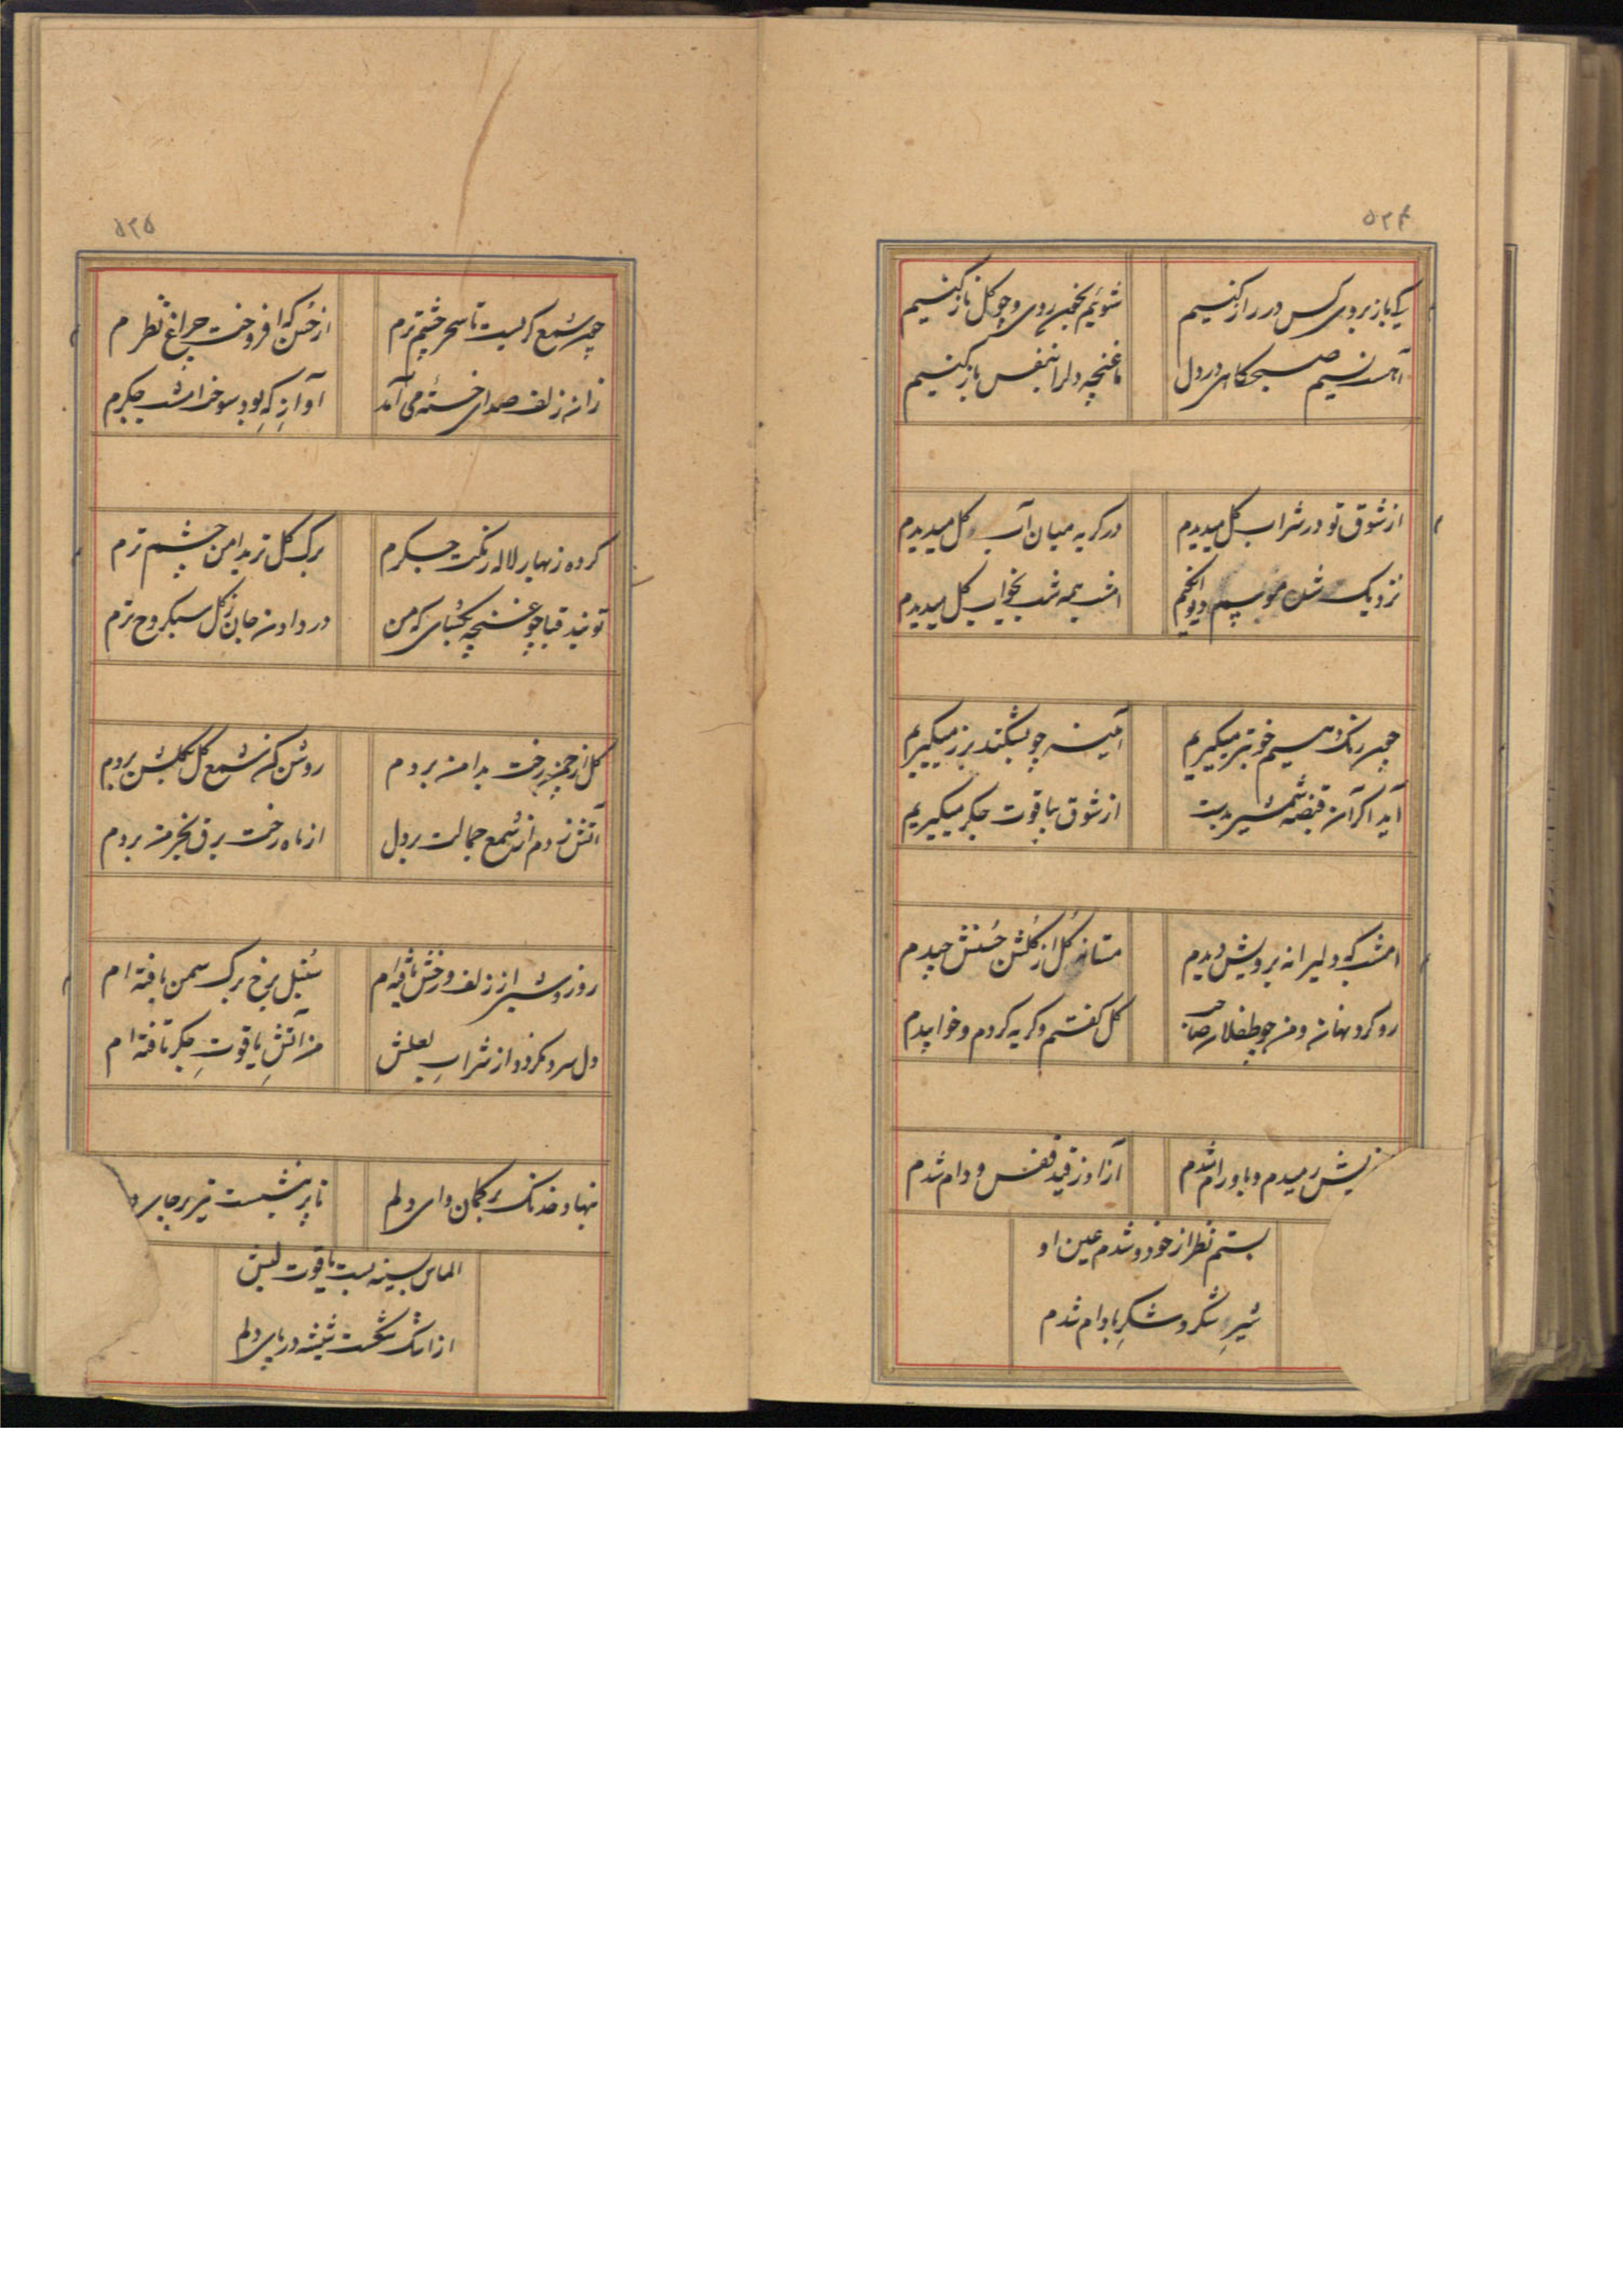 ۵۲۴
کی باز بروی کس در راز کنیم
شوئیم بخون روی و چو گل ناز کنیم
آمد نسیم صبحگاهی در دل
ما غنچه دل را بنفس باز کنیم
از شوق تو در شراب گل میدیدم
در گریه میان آب گل میدیدم
نزدیک شدن موسم دیوانگیم
امشب همه شب بخواب گل میدیدم
چون رنگ دهیم خونتر میگیریم
آئینه چو بشکند بزر میگیریم
آید اگر آن قبضه شمشیر بدست
از شوق بیاقوت جگر میگیریم
امشب که دلیرانه برویش دیدم
مستانه گل از گلشن حسنش چیدم
رو کرد نهان و من چو طفلان
گل گفتم و گریه کردم و خوابیدم
رمیدم و باو رام شدم
آزاد ز قید قفس و دام شدم
بستم نظر از خود و شدم عین او
شیر و شکر و شکر بادام شدم
۵۲۵
چون شمع گریست تا سحر چشم ترم
از حسن که افروخت چراغ نظرم
زان زلف صدای خسته می آمد
آواز که بود سوخت امشب جگرم
کرده ز بهار لاله رنگت جگرم
برگ گل تر بدامن چشم ترم
تو بند قبا چو غنچه بگشای که من
در دادن جان ز گل سبکروح ترم
گل از چمن رخت بدامن بردم
روشن کن شمع گل بگلشن بردم
آتش زدم از شمع جمالت بر دل
از ماه رخت برق بخرمن بردم
روز و شبی از زلف و رخش یافته ام
سنبل برخ برگ سمن بافته ام
دل سرد نگردد از شراب لعلش
من آتش یاقوت جگر تافته ام
بنهاد خدنگ بر کمان وای دلم
تا پر بنشست تیر بر جای
الماس بسینه بست یاقوت لبش
از اشک شکست شیشه در پای دلم